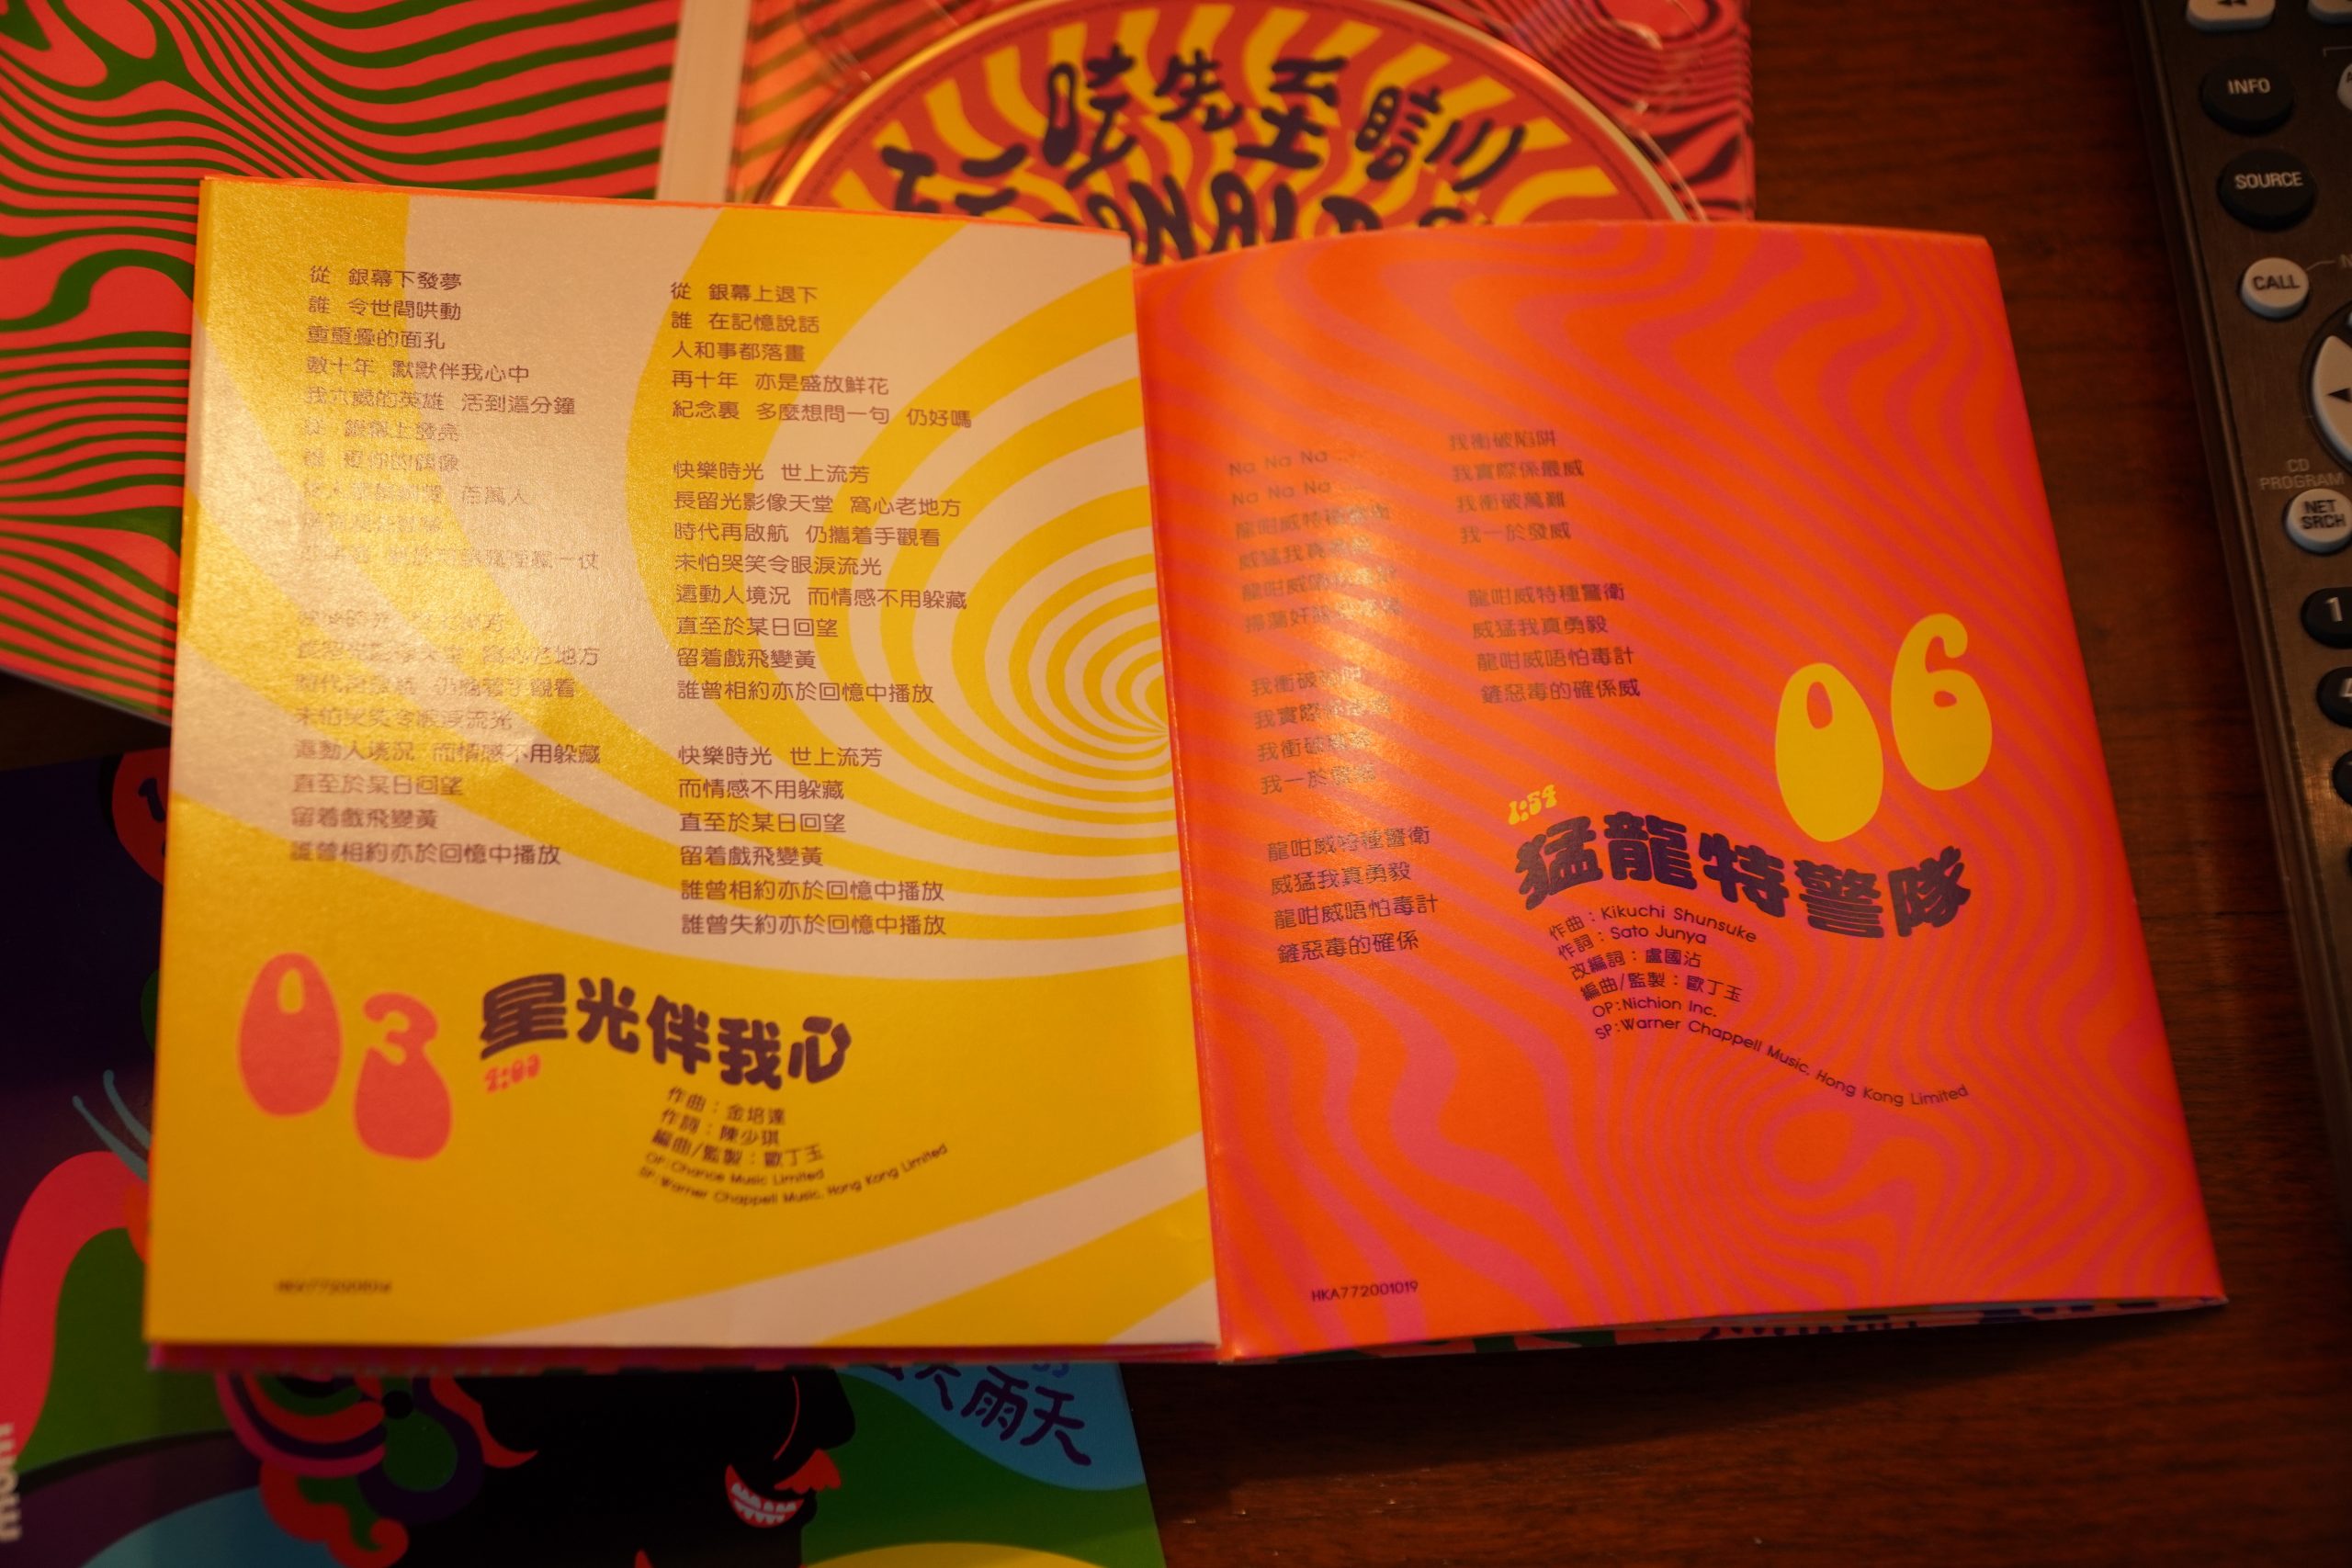 玩咗先至瞓
INFO
SOURCE
CALL
CD
PROGRAM
NET
SRCH
1
從 銀幕下發夢
誰 令世間哄動
重重疊的面孔
數十年 默默伴我心中
我六歲的英雄 活到這分鐘
從 銀幕上發亮
百萬人
一仗
窩心老地方
時代再啟航 仍攜着手觀看
未怕哭笑令眼淚流光
這動人境況 而情感不用躲藏
直至於某日回望
留着戲飛變黃
誰曾相約亦於回憶中播放
從 銀幕上退下
誰 在記憶說話
人和事都落畫
再十年 亦是盛放鮮花
紀念裏 多麼想問一句 仍好嗎
快樂時光 世上流芳
長留光影像天堂 窩心老地方
時代再啟航 仍攜着手觀看
未怕哭笑令眼淚流光
這動人境況 而情感不用躲藏
直至於某日回望
留着戲飛變黃
誰曾相約亦於回憶中播放
快樂時光 世上流芳
而情感不用躲藏
直至於某日回望
留着戲飛變黃
誰曾相約亦於回憶中播放
誰曾失約亦於回憶中播放
03
星光伴我心
作曲：金培達
作詞：陳少琪
編曲/監製：歐丁玉
OP:Chance Music Limited
SP:Warner Chappell Music, Hong Kong Limited
Na Na Na
Na Na Na
龍咁威特種警衛
威猛我真
龍咁威唔怕
掃蕩奸
我衝破
我實際
我衝破
我一於
龍咁威特種警衛
威猛我真勇毅
龍咁威唔怕毒計
鏟惡毒的確係
我衝破陷阱
我實際係最威
我衝破萬難
我一於發威
龍咁威特種警衛
威猛我真勇毅
龍咁威唔怕毒計
鏟惡毒的確係威
06
1:54
猛龍特警隊
作曲：Kikuchi Shunsuke
作詞：Sato Junya
改編詞：盧國沾
編曲/監製：歐丁玉
OP:Nichion Inc.
SP:Warner Chappell Music, Hong Kong Limited
HKA772001019
雨天